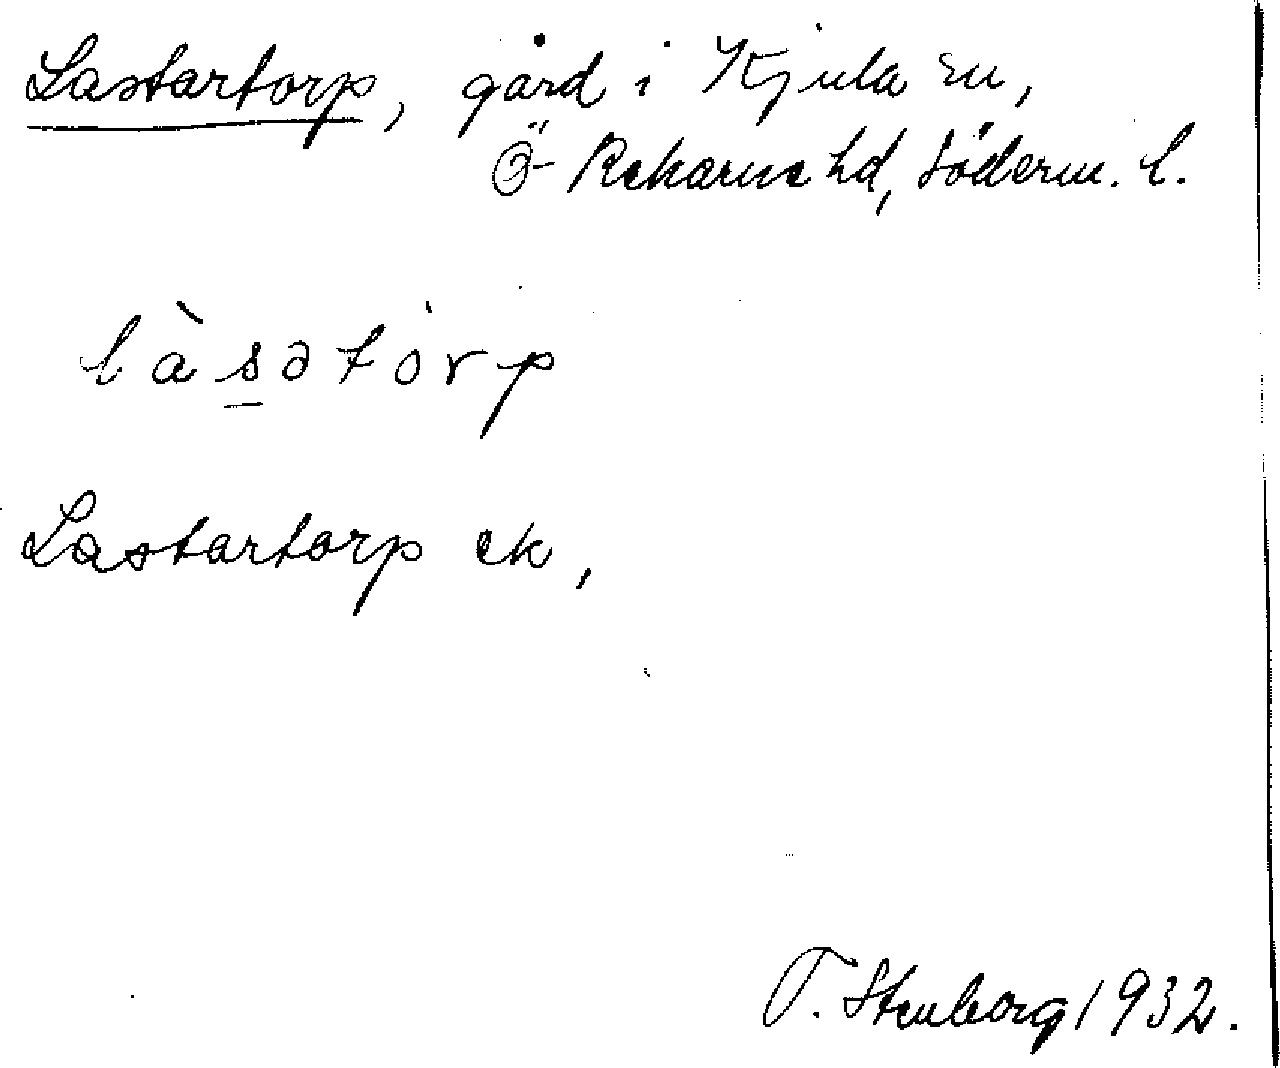 Lastartorp, gård i Kjula sn,
Ö Rekarne hd, Söderm. l.
là s̲ətȯrp
Lastartorp ek,
T. Stenborg 1932.